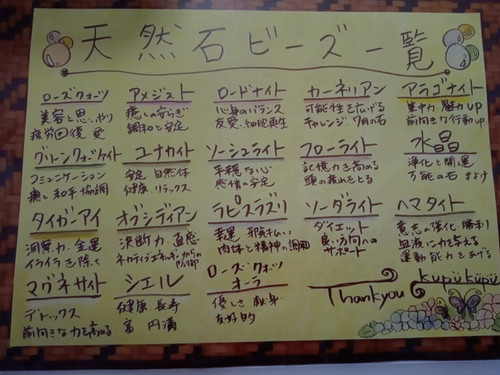 天然石ビーズ一覧
ローズクォーツ
美容と思いやり
疲労回復 愛
アメジスト
癒し 安らぎ
調和と安定
ロードナイト
心身のバランス
友愛 細胞再生
カーネリアン
可能性を広げる
チャレンジ 7月の石
アラゴナイト
集中力 魅力UP
前向きな行動UP
グリーンクォーツァイト
コミュニケーション
癒し 和 手 協調
ユナカイト
安定 自然体
健康 リラックス
ソーシュライト
平穏な心
感情の安定
フローライト
記憶力を高める
頭の疲れをとる
水晶
浄化と開運
万能の石 まよけ
タイガーアイ
洞察力 金運
イライラを除く
オブシディアン
決断力 直感
ネガティブエネルギーからの
防御
ラピスラズリ
幸運 邪気払い
肉体と精神の調和
ソーダライト
ダイエット
良い方向への
サポート
ヘマタイト
意志の強化 勝利
血液に力を与える
運動能力をあげる
マグネサイト
デトックス
前向きな力を高める
シェル
健康 長寿
富 円満
ローズクォーツ
オーラ
優しさ 献身
友好的
Thankyou
kupukupu